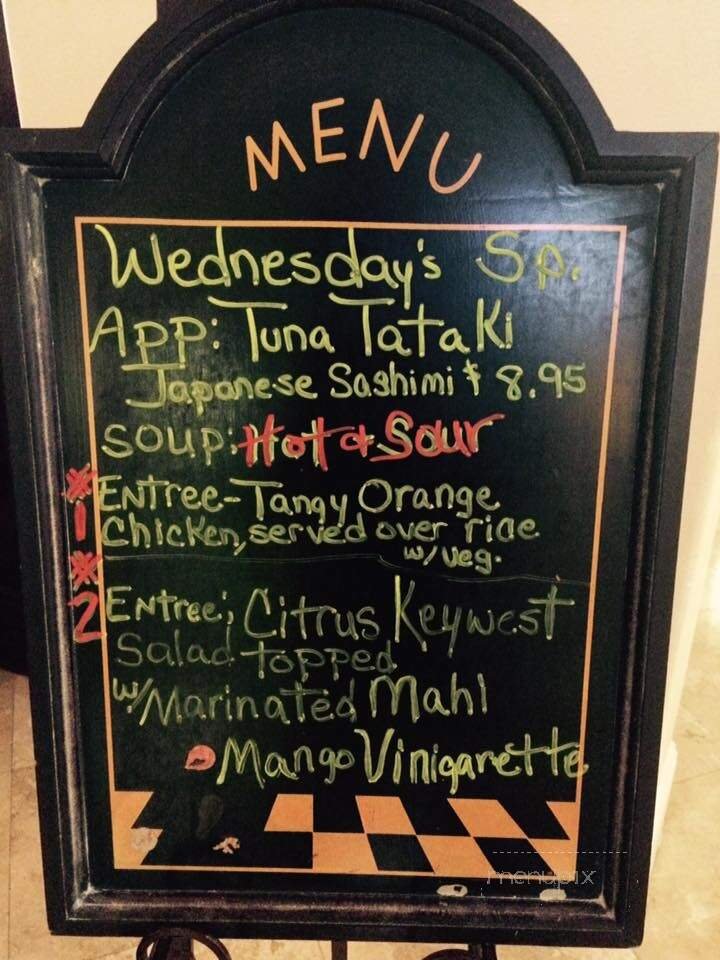 MENU
Wednesday's Sp.
App: Tuna Tataki
Japanese Sashimi $ 8.95
SOUP: Hot & Sour
* Entree-Tangy Orange
1 Chicken, served over rice
w/ veg.
*
2 Entree; Citrus Keywest
Salad topped
w/ Marinated Mahi
Mango Vinigarette
menupix